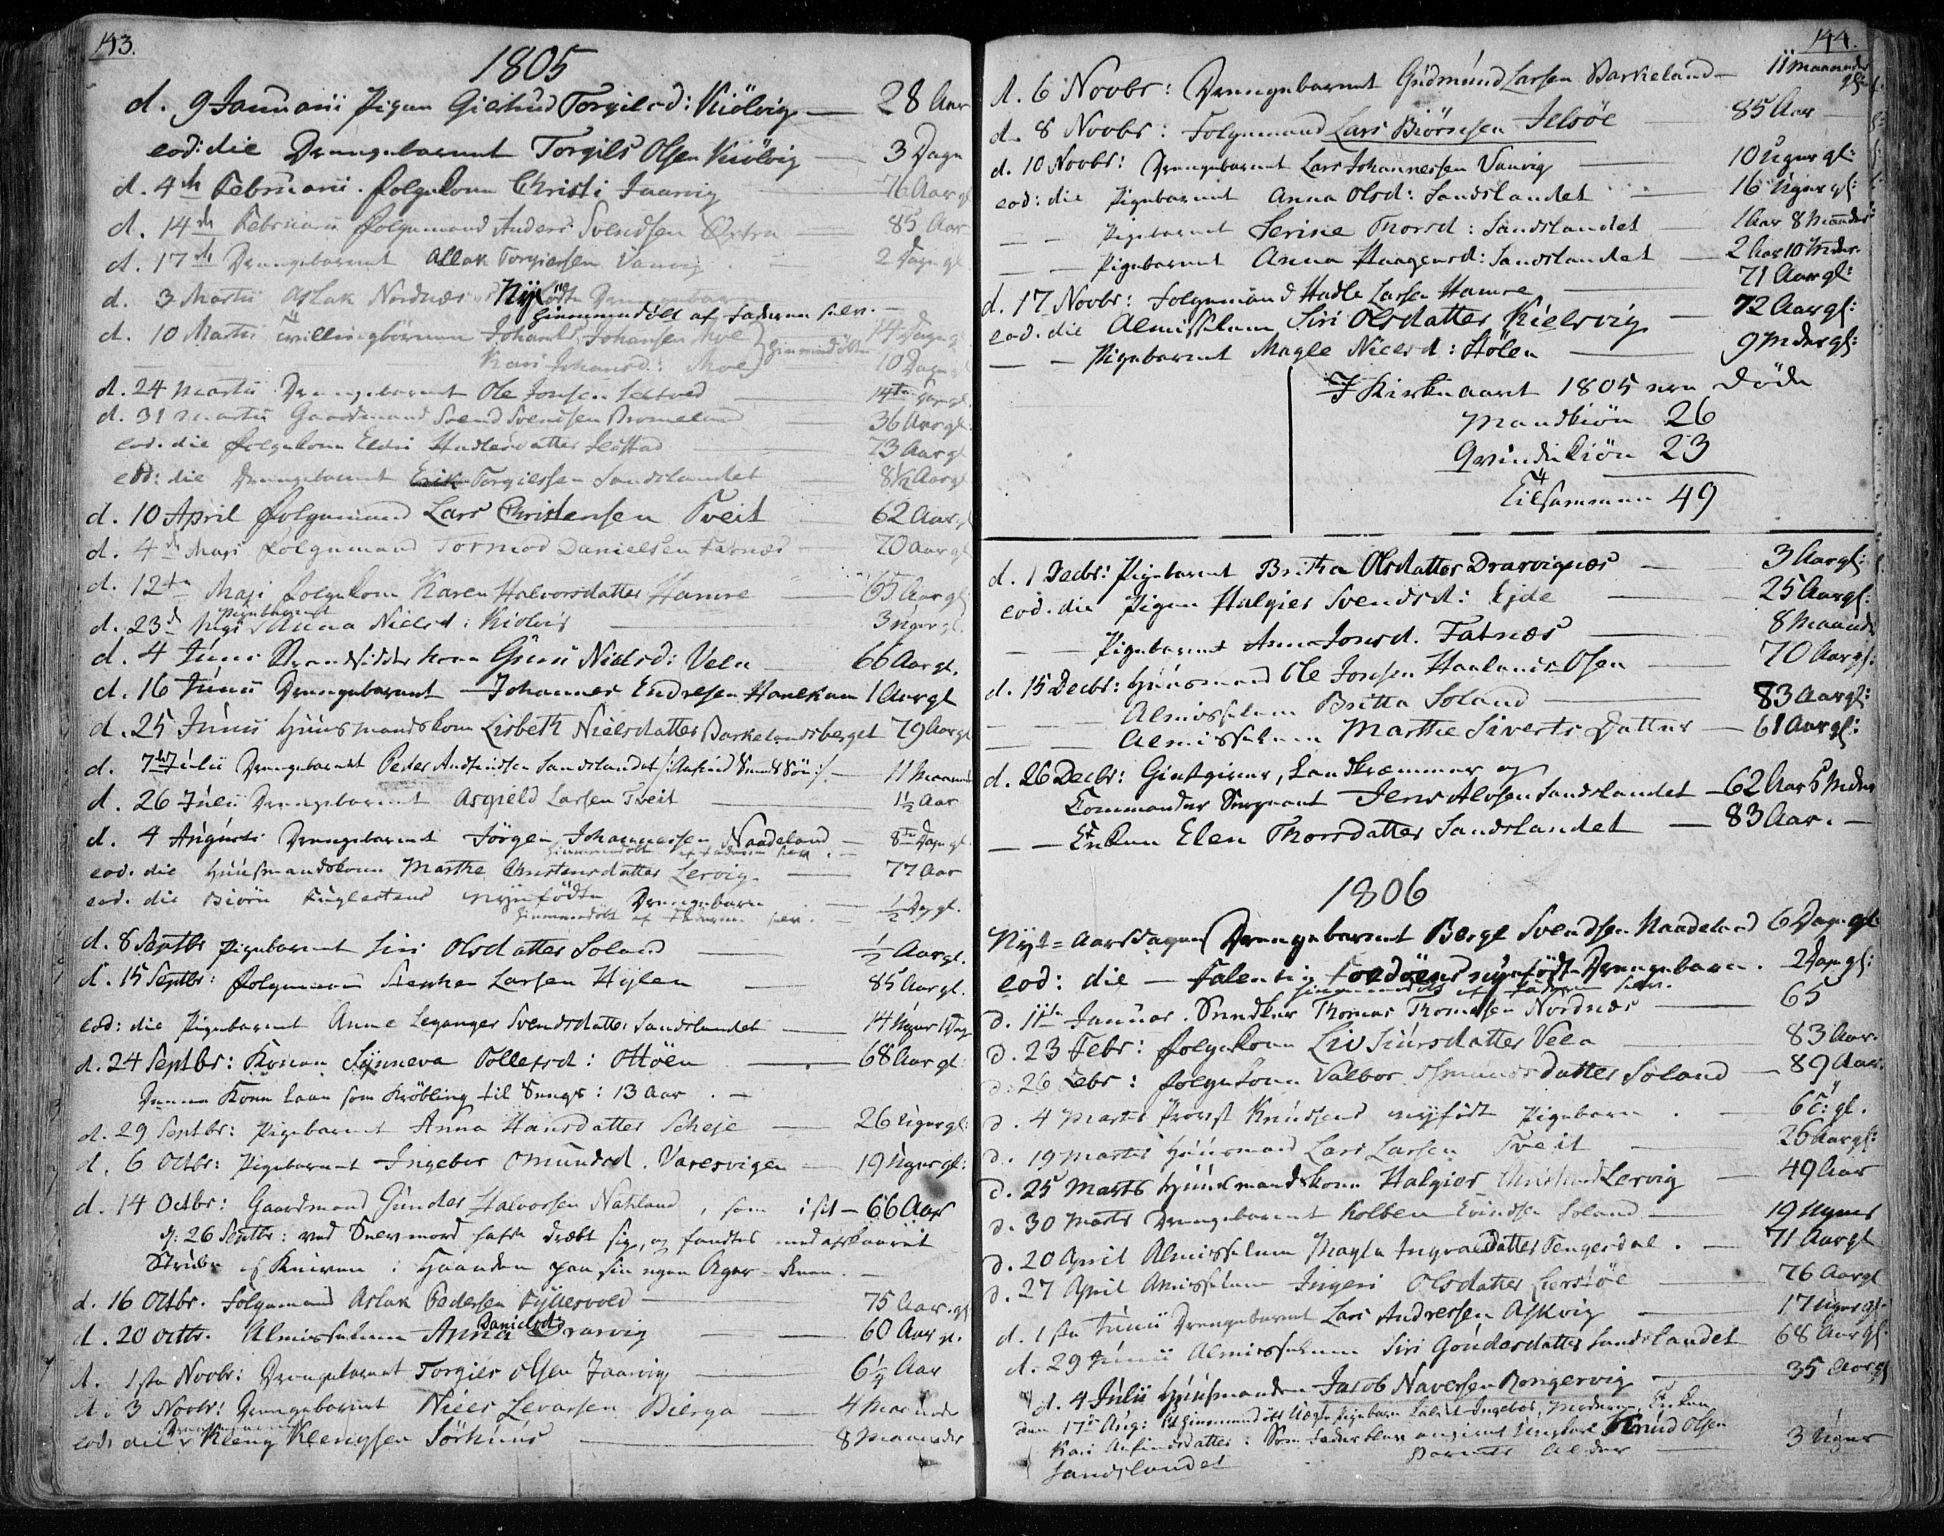 143.
1805
d. 9 Januarii Pigen Giertrud Torgilsd: Kiölvig — 28 Aar
eod: die Drengebarnet Torgils Olsen Kiölvig — 3 Dage
d. 4de Februarii. Folgekone Christi Jaarvig 76 Aar gl
d. 14de Februarii Folgemand Anders Svendsen Østra — 85 Aar
d. 17de Drengebarnet Aslak Torgiersen Vanvig 2 Dage gl
d. 3 Martii Aslak Nordnæs Nyfødte Drengebarn
hiemmedöbt af Faderen selv. —
d. 10 Martii Tvillingbörnene Johannes Johansen Moe 14 Dage
Kari Johansd: Moe hiemmedöbte 10 Dage
d. 24 Martii Drengebarnet Ole Jonsen 14ten Dage gl.
d. 31 Martii Gaardmand Svend Svendsen Bromeland 36 Aar gl:
eod. die Folgekone Eldri Hadlesdatter 73 Aar gl
eod: die Drengebarnet Erik Torgiersen Sandslandet 8½ Aar gl
d. 10 April Folgemand Lars Christensen Tveit 62 Aar gl
d. 4de Maji Folgemand Tormod Danielsen Fatnæs — 70 Aar gl
d. 12te Maji Folgekone Karen Halvorsdatter Hamre 65 Aar gl
Pigebarnet
d. 23de Maji Anna Nielsd: Kiölvig 3 Uger gl.
d. 4 Junii Strandsidder kone Guri Nielsd: Vela — 66 Aar gl.
d. 16 Junii Drengebarnet Johannes Endresen Hanekam 1 Aar gl
d. 25 Junii Huusmandskone Lisbeth Nielsdatter Barkelandsberget 79 Aar gl
d. 7de Julii Drengebarnet Peder Andfindsen Sandslandet — 11 Maaneder
d. 26 Julii Drengebarnet Asgield Larsen Tveit — 1½ Aar
d. 4 Augusti Drengebarnet Jörgen Johannessen Naadeland — 8te Dage gl.
hiemmedöbt af Faderen selv. —
eod. die Huusmandskone Marthe Christensdatter Lervig. — 77 Aar
eod. die Biörn nyefödte Drengebarn — ½ Dag gl.
hiemmedöbt af Faderen selv.
d. 8 Septbr Pigebarnet Siri Olsdatter Soland — ½ Aar gl.
d. 15 Septbr: Folgemand Larsen Hylen — 85 Aar gl.
eod: die Pigebarnet Anne Leganger Svendsdatter Sandslandet — 14 Uger 1 Dag
d. 24 Septbr: Konen Synneva Tollefsd: Ottöen — 68 Aar gl
Denne Kone laae som Kröbling til Sengs: 13 Aar. —
d. 29 Septbr: Pigebarnet Anna Hansdatter Scheje — 26 Uger gl:
d. 6 Octbr: Pigebarnet Ingebor Omundsd. Varesvigen — 19 Uger gl:
d. 14 Octbr: Gaardmand Gunder Halvorsen Natland, som i sit — 66 Aar
d: 26 Septbr: ved Selvmord hafte dræbt sig, og fandtes med afskaaret
Strube og Kniven i Haanden paa sin egen Ager-Reen. —
d. 16 Octbr. Folgemand Aslak Pedersen — 75 Aar gl
d. 20 octbr. Almisselem Anna Danielsdtr Drarvig — 60 Aar gl.
d. 1ste Novbr: Drengebarnet Torgils Olsen Jaarvig — 6½ Aar
d. 3 Novbr: Drengebarnet Niels Levarsen Bierga — 4 Maaneder
Drengebarnet
eod: die Kleng Klengsen Sörhuus — 8 Maaneder
144.
d. 6 Novbr: Drengebarnet Gudmund Larsen Barkeland — 11 maaneder gl:
d. 8 Novbr: Folgemand Lars Biörnsen Jelsöe — 85 Aar —
d. 10 Novbr: Drengebarnet Lars Johannessen Vanvig — 10 Uger gl:
eod: die Pigebarnet Anna Olsd: Sandslandet — 16 Uger gl:
— — Pigebarnet Serine Thorsd: Sandslandet — 1 Aar 8 Maaneder
— — Pigebarnet Anna Haagensd: Sandslandet — 2 Aar 10 Mder.
d. 17 Novbr: Folgemand Hadle Larsen Hamre — 71 Aar gl:
eod. die Almisselem Siri Olsdatter Kielsvig — 72 Aar gl:
— — Pigebarnet Magle Nielsd: Hölen — 9 Mder gl:
I Kirkeaaret 1805 ere döde
Mandkiön 26
Qvindekiön 23
Tilsammen 49
d. 1 Decbr: Pigebarnet Britha Olsdatter Drarvignæs — 3 Aar gl:
eod. die Pigen Halgier Svendsd: Eide — 25 Aar gl:
— — Pigebarnet Anna Jonsd. Fatnæs — 8 Maaneder
d. 15 Decbr: Huusmand Ole Jonsen Haalands Osen — 70 Aar gl:
— — Almisselem Britta Soland — 83 Aar gl:
— — Almisselem Marthe Siverts Datter — 61 Aar gl:
d. 26 Decbr: Giestgiver, Landkræmmer og
Commandeer Sergeant Jens Alvsen Sandslandet — 62 Aar 5 Mder
— — Enken Elen Thorsdatter Sandslandet — 83 Aar. —
1806
Nyt=Aarsdagen Drengebarnet Berge Svendsen Naadeland 6 Dage gl.
eod: die — nyefödte Drengebarn. 2 Dage gl:
hiemmedöbt af Faderen selv.
d. 11te Januar. Thomas Thomesen Nordnæs — 65
d. 23 Febr: Folgekone Liv Siursdatter Vela — 83 Aar.
d. 26 Febr: Folgekone Valbor Osmunds Datter Soland — 89 Aar.
d. 4 Martii Provst Knudsens nyfödt Pigebarn. — 6 gl.
d. 19 Martii Huusmand Lars Larsen Tveit — 26 Aar gl:
d. 25 Marts Huusmandskone Halgier Lervig — 49 Aar
d. 30 Marts Drengebarnet Kolben Eivindsen Soland — 19 Uger
d. 20 April Almisselem Magla Ingvaldsdatter Tengesdal. — 71 Aar gl
d. 27 April Almisselem Ingeri Olsdatter — 76 Aar gl
d. 1ste Junii Drengebarnet Lars Andersen Askvig — 17 Uger gl.
d. 29 Junii Almisselem Siri Gundersdatter Sandslandet 68 Aar gl.
d. 4 Julii Huusmanden Jacob Naversen Rongervig — 35 Aar gl
den 17de Aug: Et hiemmedöbt Uægte Pigebarn kaldet Ingebor, Moderen, Enken
Kari Anfindsdatter: Som Fader blev angivet Knud Olsen
Sandslandet Barnets Alder — 3 Uger